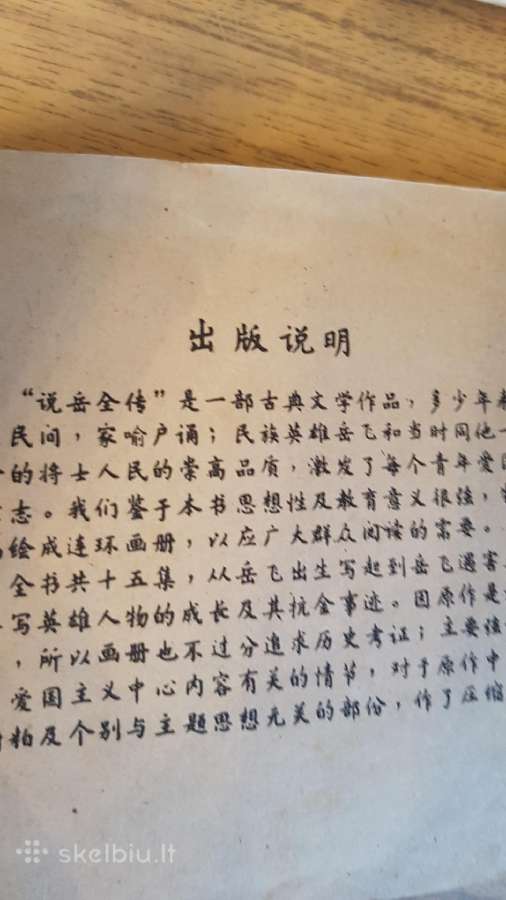 出版说明
“说岳全传”是一部古典文学作品，多少年
民间，家喻户诵；民族英雄岳飞和当时同他一
的将士人民的崇高品质，激发了每个青年爱国
志。我们鉴于本书思想性及教育意义很强，
绘成连环画册，以应广大群众阅读的需要。
全书共十五集，从岳飞出生写起到岳飞遇害
写英雄人物的成长及其抗金事迹。因原作是
，所以画册也不过分追求历史考证；主要该
爱国主义中心内容有关的情节，对于原作中
粕及个别与主题思想无关的部份，作了压缩
skelbiu.lt